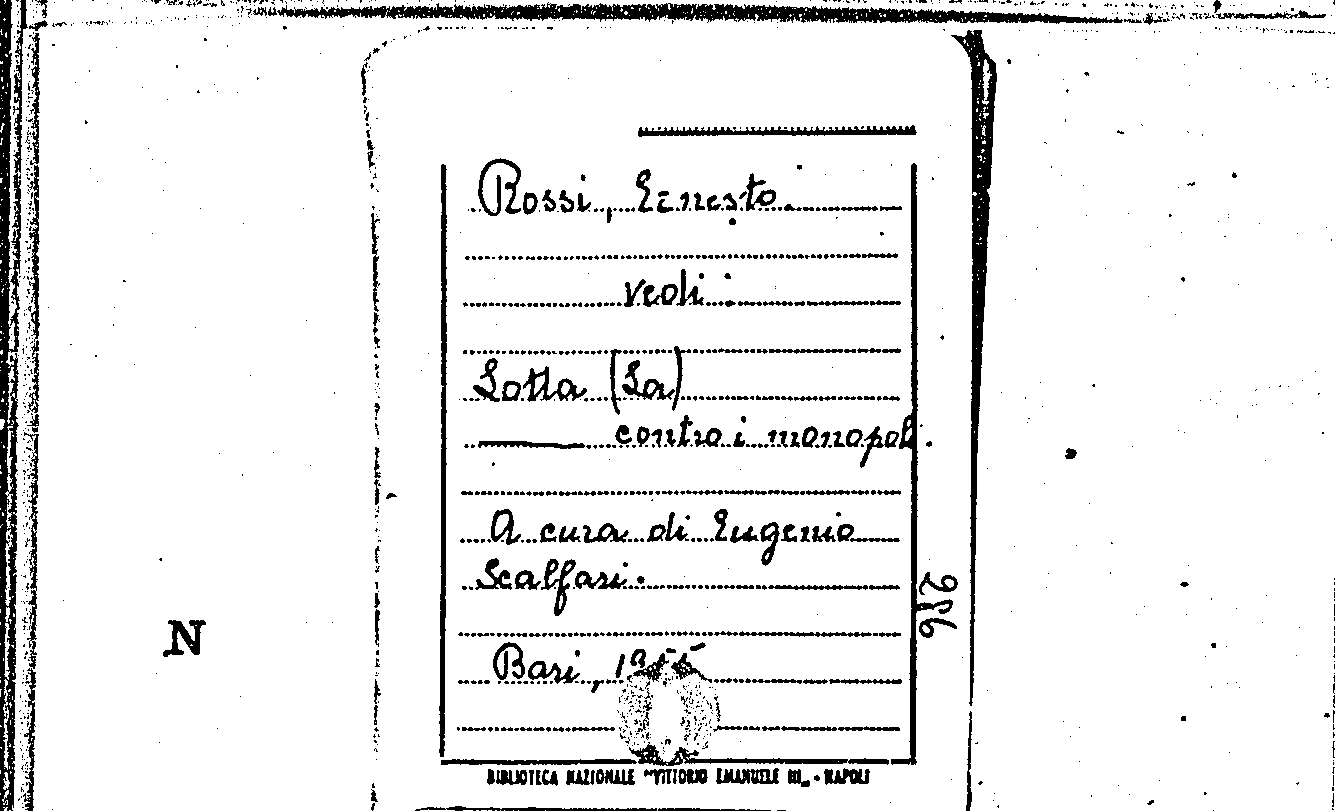 Rossi, Ernesto.
vedi:
Lotta (La)
——— contro i monopoli.
A cura di Eugenio
Scalfari.
Bari, 1955
286
N
BIBLIOTECA NAZIONALE "VITTORIO EMANUELE III„ - NAPOLI